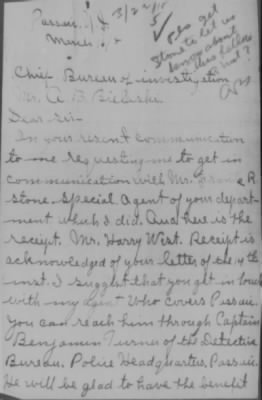 Passaic, N.J.
March
3/22/15
Pls get
Stone to let us
know about
this fellow
Chief Bureau of investigation
Mr. A. B. Bielaski.
Dear sir-
In your resent communication
to me requesting me to get in
communication with Mr. Frank R.
stone. special agent of your depart-
ment which I did. Ans here is the
receipt. Mr. Harry West. Receipt is
acknowledged of your letter of the 14th
inst. I suggest that you get in touch
with my agent who covers Passaic.
You can reach him through Captain
Benjamin Turner of the Detective
Bureau. Police Headquarters. Passaic.
He will be glad to have the benefit